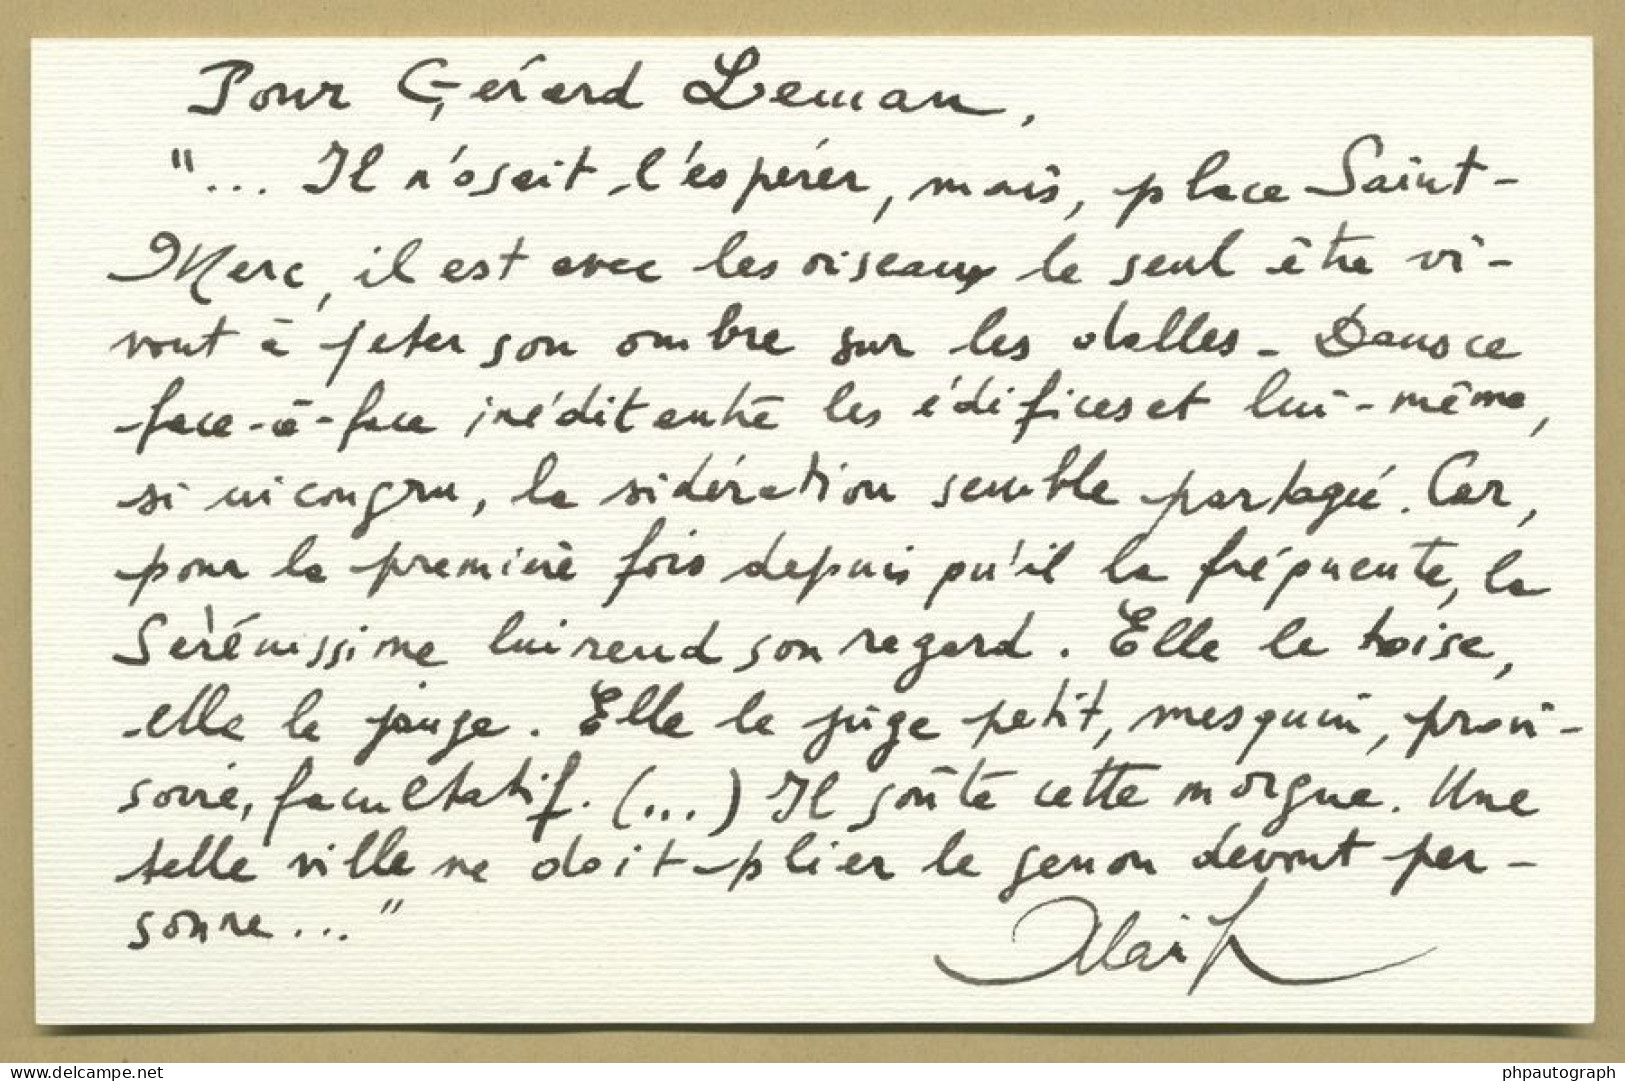 Pour Gérard Leman,
"... Il n'osait l'espérer, mais, place Saint-
Marc, il est avec les oiseaux le seul être vi-
vant à jeter son ombre sur les dalles. Dans ce
face-à-face inédit entre les édifices et lui-même,
si incongru, la sidération semble partagée. Car,
pour la première fois depuis qu'il la fréquente, la
Sérénissime lui rend son regard. Elle le toise,
elle le jauge. Elle le juge petit, mesquin, provi-
soire, facultatif. (...) Il goûte cette morgue. Une
telle ville ne doit plier le genou devant per-
sonne..."
www.delcampe.net
phpautograph